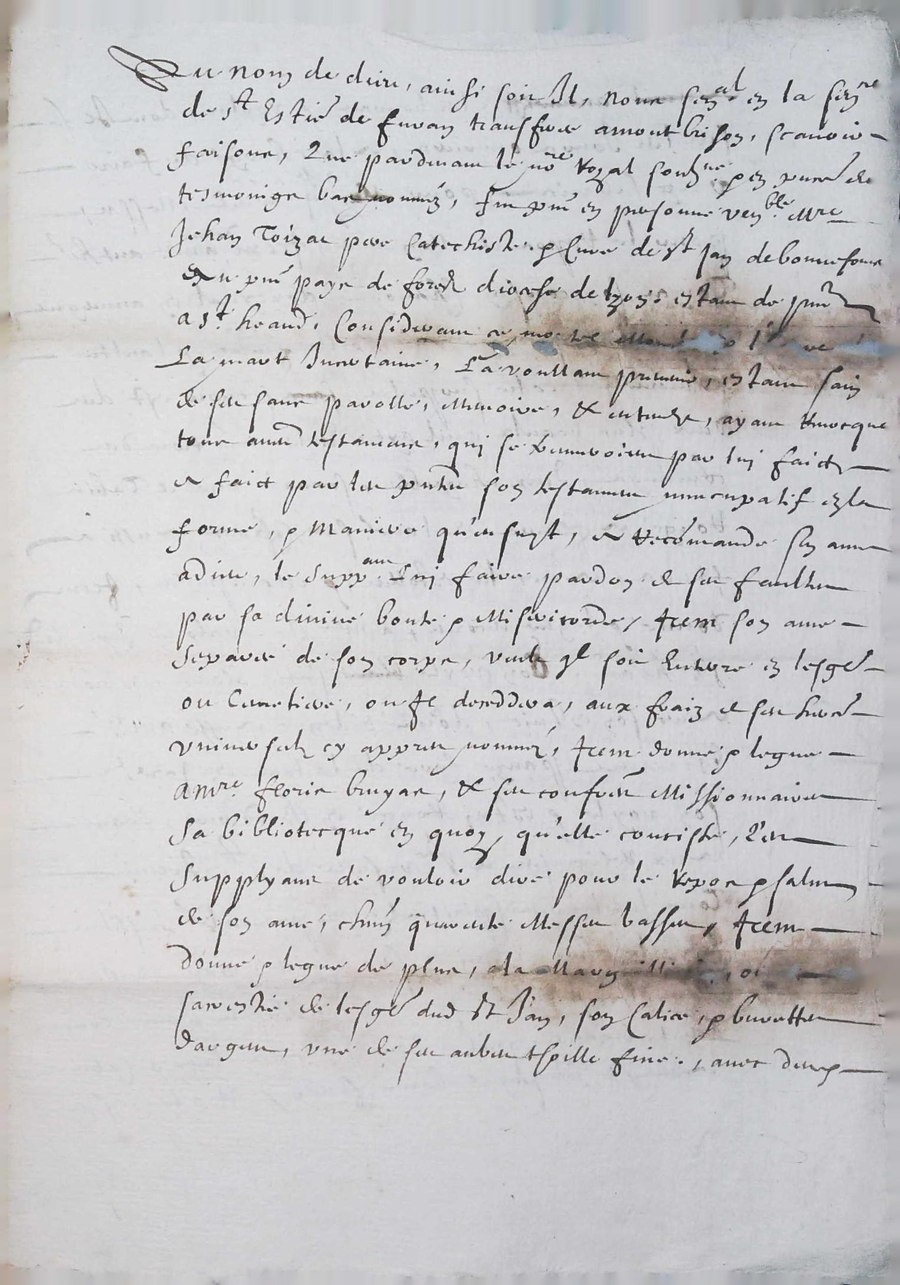 Au nom de dieu, ainsi soit Il, nous sen.al en la sen.ee
de st Estie de furan transferee a montbrison, scavoir
faisons, Que pardevant le no.re Royal soubz.ne p en pnce de
tesmoings bas nommez, fut pnt en personne ven.ble M.re
Jehan Toizac p.bre Catechiste & Cure de st Jan de bonnefons
pays de forestz diocese de lyon, estant de pnt
a st heand, Considerant mortel
La mort Incertaine, La voullant prevenir, estant sain
de ses sans parolle, memoire, & entendz, ayant Revocque
tous autres testamans, qui se trouveroient par lui faictz
& faict par les pntes son testament nuncupatif en la
forme, & Maniere qu'ensuyt, a Recomande son ame
a dieu, le supp.ant Lui faire pardon de ses faultes
par sa divine bonte & Misericorde, Item son ame
Separee de son corps, veult q'il soit Enterre en lesgle
ou Cimetiere, ou Il deceddera, aux fraiz de ses here
universelz cy appres nommez, Item donne & legue
a m.re floris bruyas, & ses confreres Missionnaires
Sa bibliotecque en quoy qu'elle consiste, Les
Supplyant de vouloir dire pour le Repos & salut
de son ame, chun quarante Messes basses, Item
donne & legue de plus, a la
sacrestie de lesgle dud st Jan, son Calice, & burettes
dargent, une de ses aubes thoille fine, avec deux